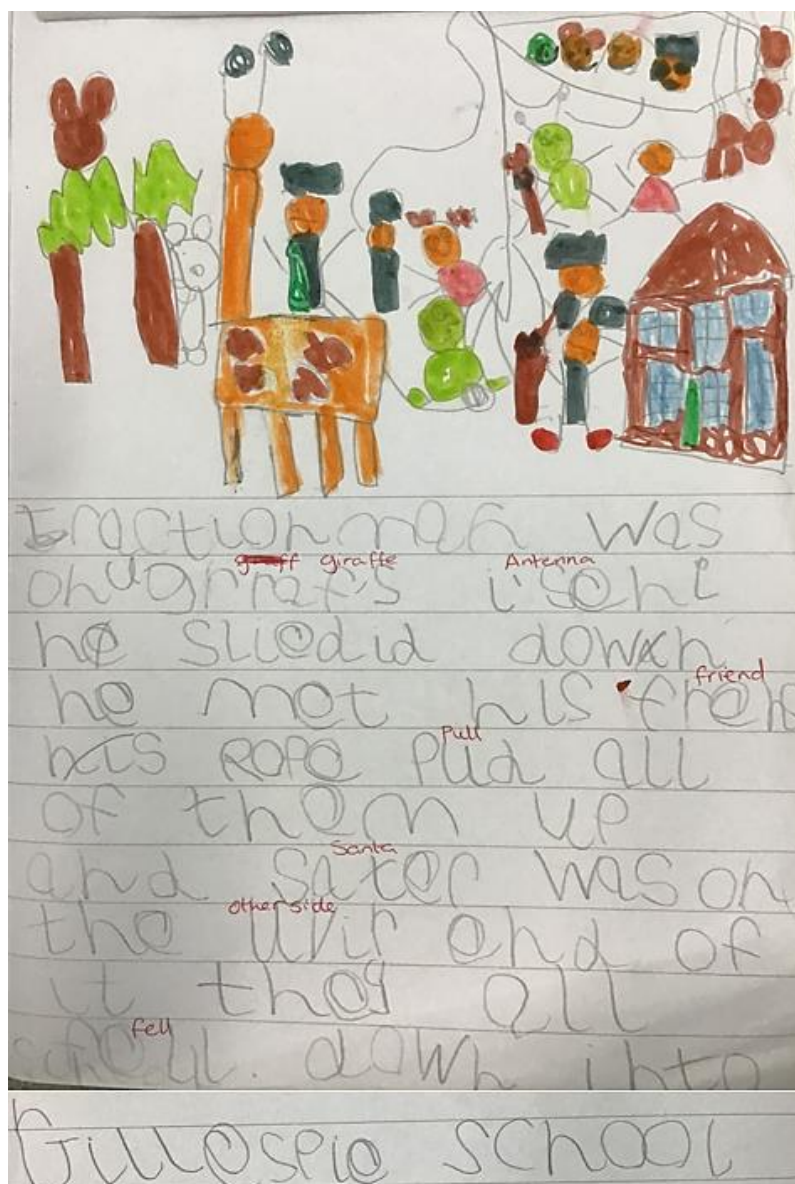 tractionman was
graff giraffe Antenna
on a grraf's i'sent
he sliedid down
friend
he met his fren
Pull
his ROPe Plld all
of them up
Santa
and Sater was on
other side
the uvir end of
it they all
fell
down into
Gillespie school